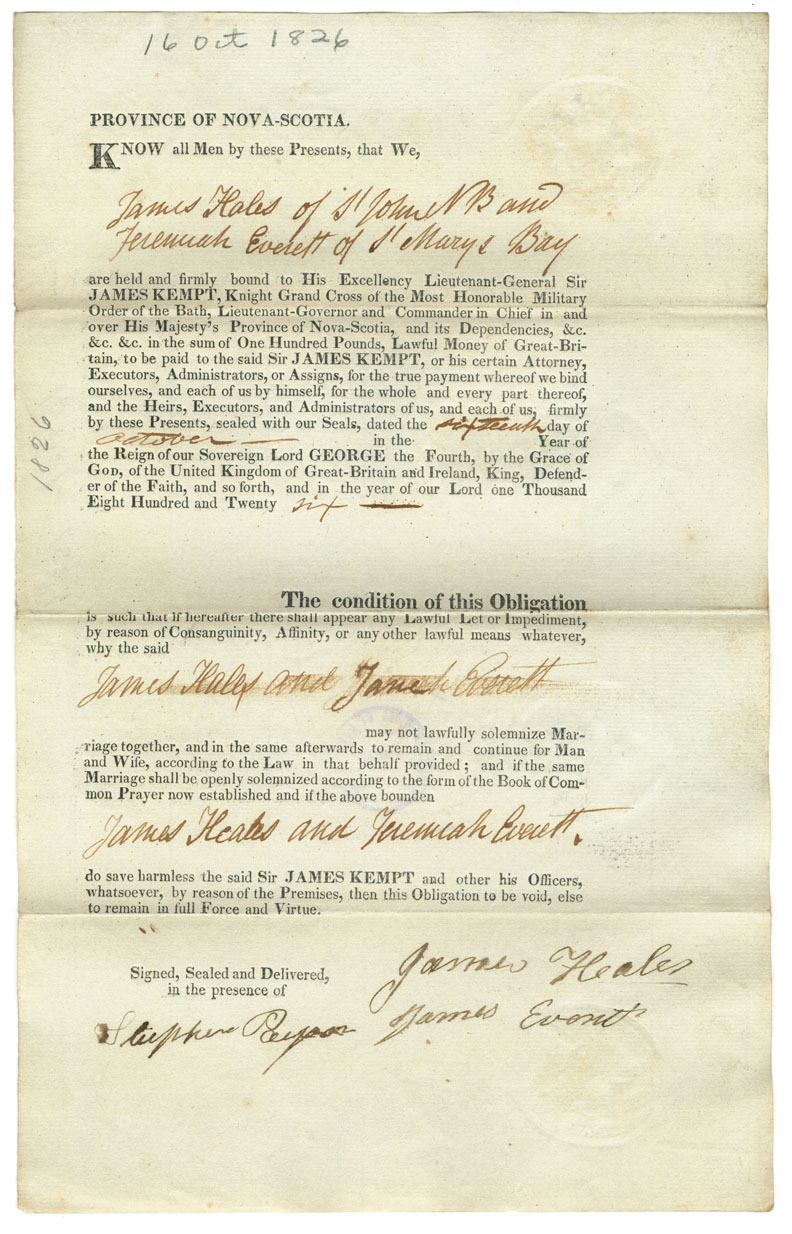 16 Oct 1826
PROVINCE OF NOVA-SCOTIA.
KNOW all Men by these Presents, that We,
James Hales of St John NB and
Jeremiah Everett of St Marys Bay
are held and firmly bound to His Excellency Lieutenant-General Sir
JAMES KEMPT, Knight Grand Cross of the Most Honorable Military
Order of the Bath, Lieutenant-Governor and Commander in Chief in and
over His Majesty's Province of Nova-Scotia, and its Dependencies, &c.
&c. &c. in the sum of One Hundred Pounds, Lawful Money of Great-Bri-
tain, to be paid to the said Sir JAMES KEMPT, or his certain Attorney,
Executors, Administrators, or Assigns, for the true payment whereof we bind
ourselves, and each of us by himself, for the whole and every part thereof,
and the Heirs, Executors, and Administrators of us, and each of us, firmly
by these Presents, sealed with our Seals, dated the sixteenth day of
october — in the Year of
the Reign of our Sovereign Lord GEORGE the Fourth, by the Grace of
GOD, of the United Kingdom of Great-Britain and Ireland, King, Defend-
er of the Faith, and so forth, and in the year of our Lord one Thousand
Eight Hundred and Twenty six —
1826
The condition of this Obligation
is such that if hereafter there shall appear any Lawful Let or Impediment,
by reason of Consanguinity, Affinity, or any other lawful means whatever,
why the said
James Hales and Jane Everett
may not lawfully solemnize Mar-
riage together, and in the same afterwards to remain and continue for Man
and Wife, according to the Law in that behalf provided; and if the same
Marriage shall be openly solemnized according to the form of the Book of Com-
mon Prayer now established and if the above bounden
James Heales and Jeremiah Everett.
do save harmless the said Sir JAMES KEMPT and other his Officers,
whatsoever, by reason of the Premises, then this Obligation to be void, else
to remain in full Force and Virtue.
Signed, Sealed and Delivered,
in the presence of
James Heales
Stephen
James Everett